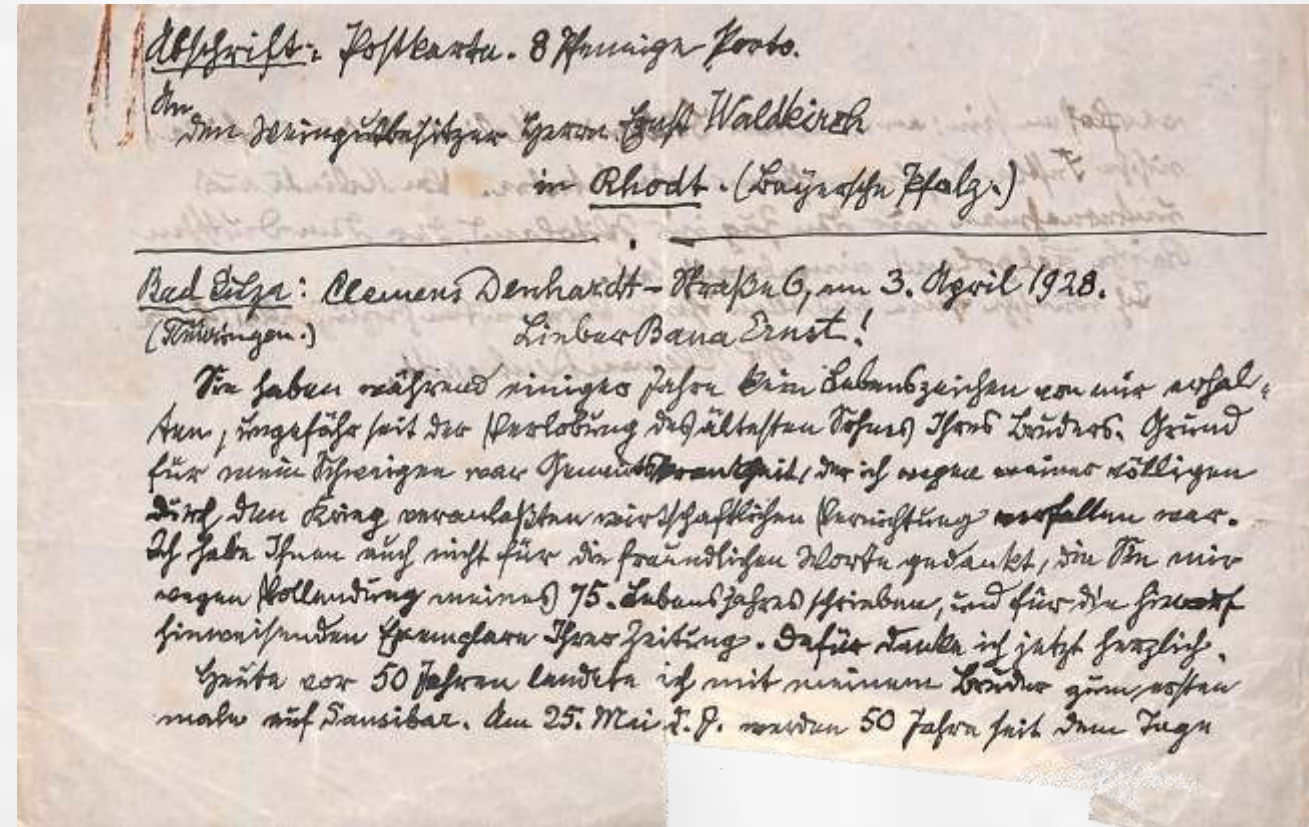 Abschrift: Postkarte. 8 Pfennige Porto.
An
den Weingutbesitzer Herrn Ernst Waldkirch
in Rhodt. (Bayersche Pfalz.)
Bad Sulza: Clemens Denhardt-Straße 6, am 3. April 1928.
(Thüringen.) Lieber Bana Ernst!
Sie haben während einiger Jahre kein Lebenszeichen von mir erhal-
ten, ungefähr seit der Verlobung des ältesten Sohnes Ihres Bruders. Grund
für mein Schweigen war Gemütskrankheit, der ich wegen meiner völligen
durch den Krieg veranlaßten wirtschaftlichen Vernichtung verfallen war.
Ich habe Ihnen auch nicht für die freundlichen Worte gedankt, die Sie mir
wegen Vollendung meines 75. Lebensjahres schrieben, und für die hierauf
hinweisenden Exemplare Ihrer Zeitung. Dafür danke ich jetzt herzlich.
Heute vor 50 Jahren landete ich mit meinem Bruder zum ersten
male auf Sansibar. Am 25. Mai d. J. werden 50 Jahre seit dem Tage